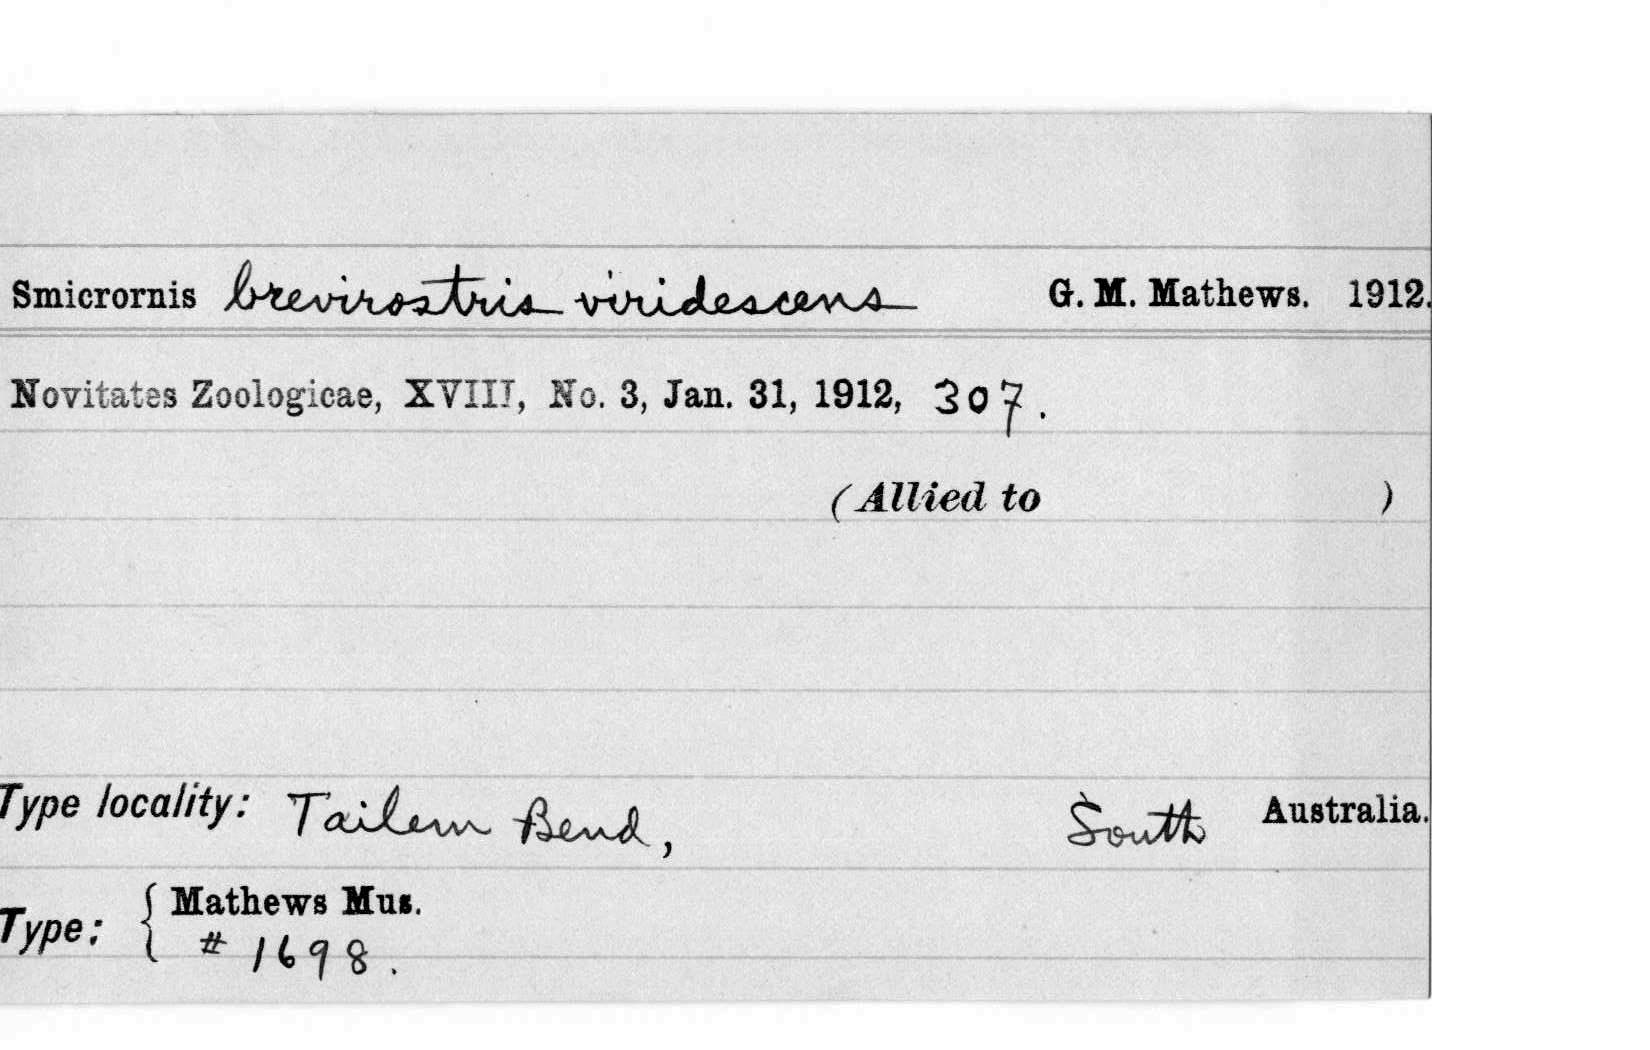 Smicrornis brevirostris viridescens G. M. Mathews. 1912.
Novitates Zoologicae, XVIII, No. 3, Jan. 31, 1912, 307.
(Allied to )
Type locality: Tailem Bend, South Australia.
Type: { Mathews Mus.
# 1698.